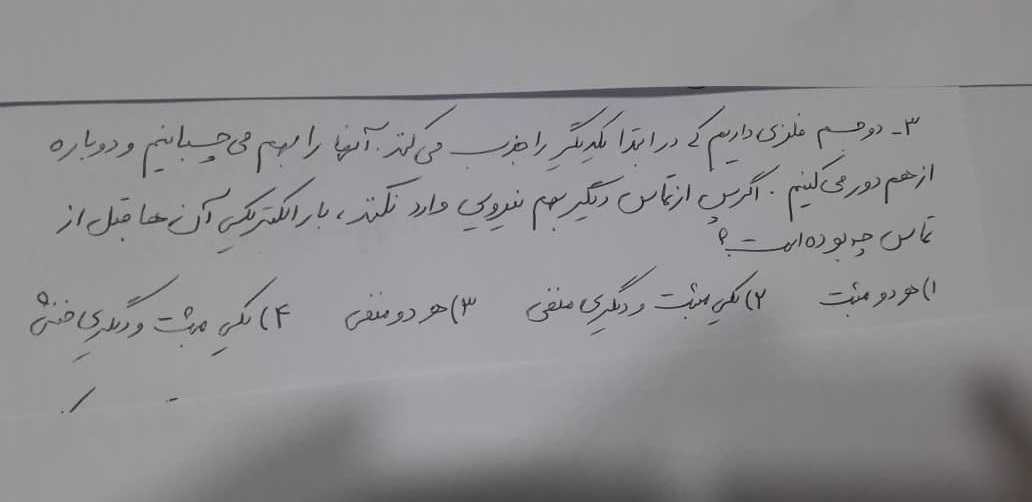 ۳- دو جسم فلزی داریم که در ابتدا یکدیگر را جذب می کنند. آنها را بهم می چسبانیم و دوباره
از هم دور می کنیم. اگر پس از تماس دیگر بهم نیرویی وارد نکنند، بار الکتریکی آن ها قبل از
تماس چه بوده است؟
۱) هر دو مثبت ۲) یکی مثبت و دیگری منفی ۳) هر دو منفی ۴) یکی مثبت و دیگری خنثی